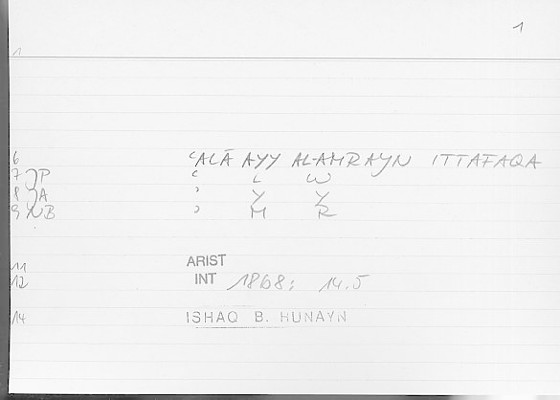 1
1
6 ʿALĀ AYY AL-AMRAYN ITTAFAQA
7 JP ʿ L W
8 JA ʾ Y Y
9 NB ʾ M R
11 ARIST
12 INT 1868: 14.5
14 ISHAQ B. HUNAYN